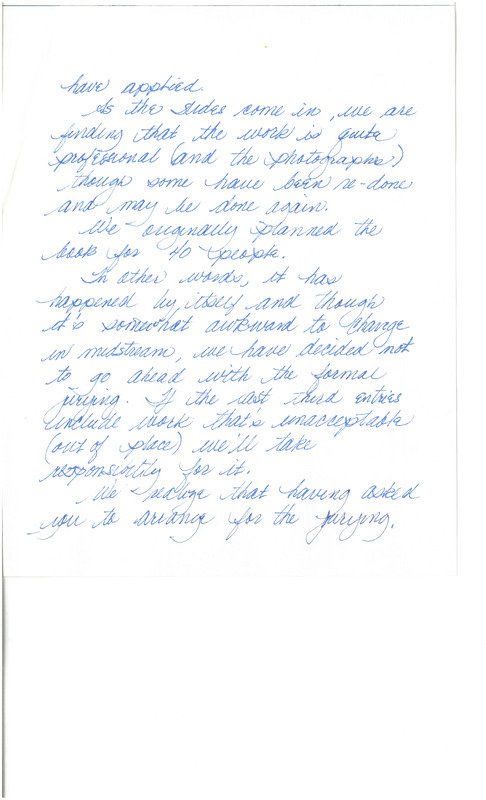 have applied.
As the slides come in, we are
finding that the work is quite
professional (and the photographs)
though some have been re-done
and may be done again.
We originally planned the
book for 40 people.
In other words, it has
happened by itself and though
it's somewhat awkward to change
in midstream, we have decided not
to go ahead with the formal
jurying. If the last third entries
include work that's unacceptable
(out of place) we'll take
responsibility for it.
We realize that having asked
you to arrange for the jurying,